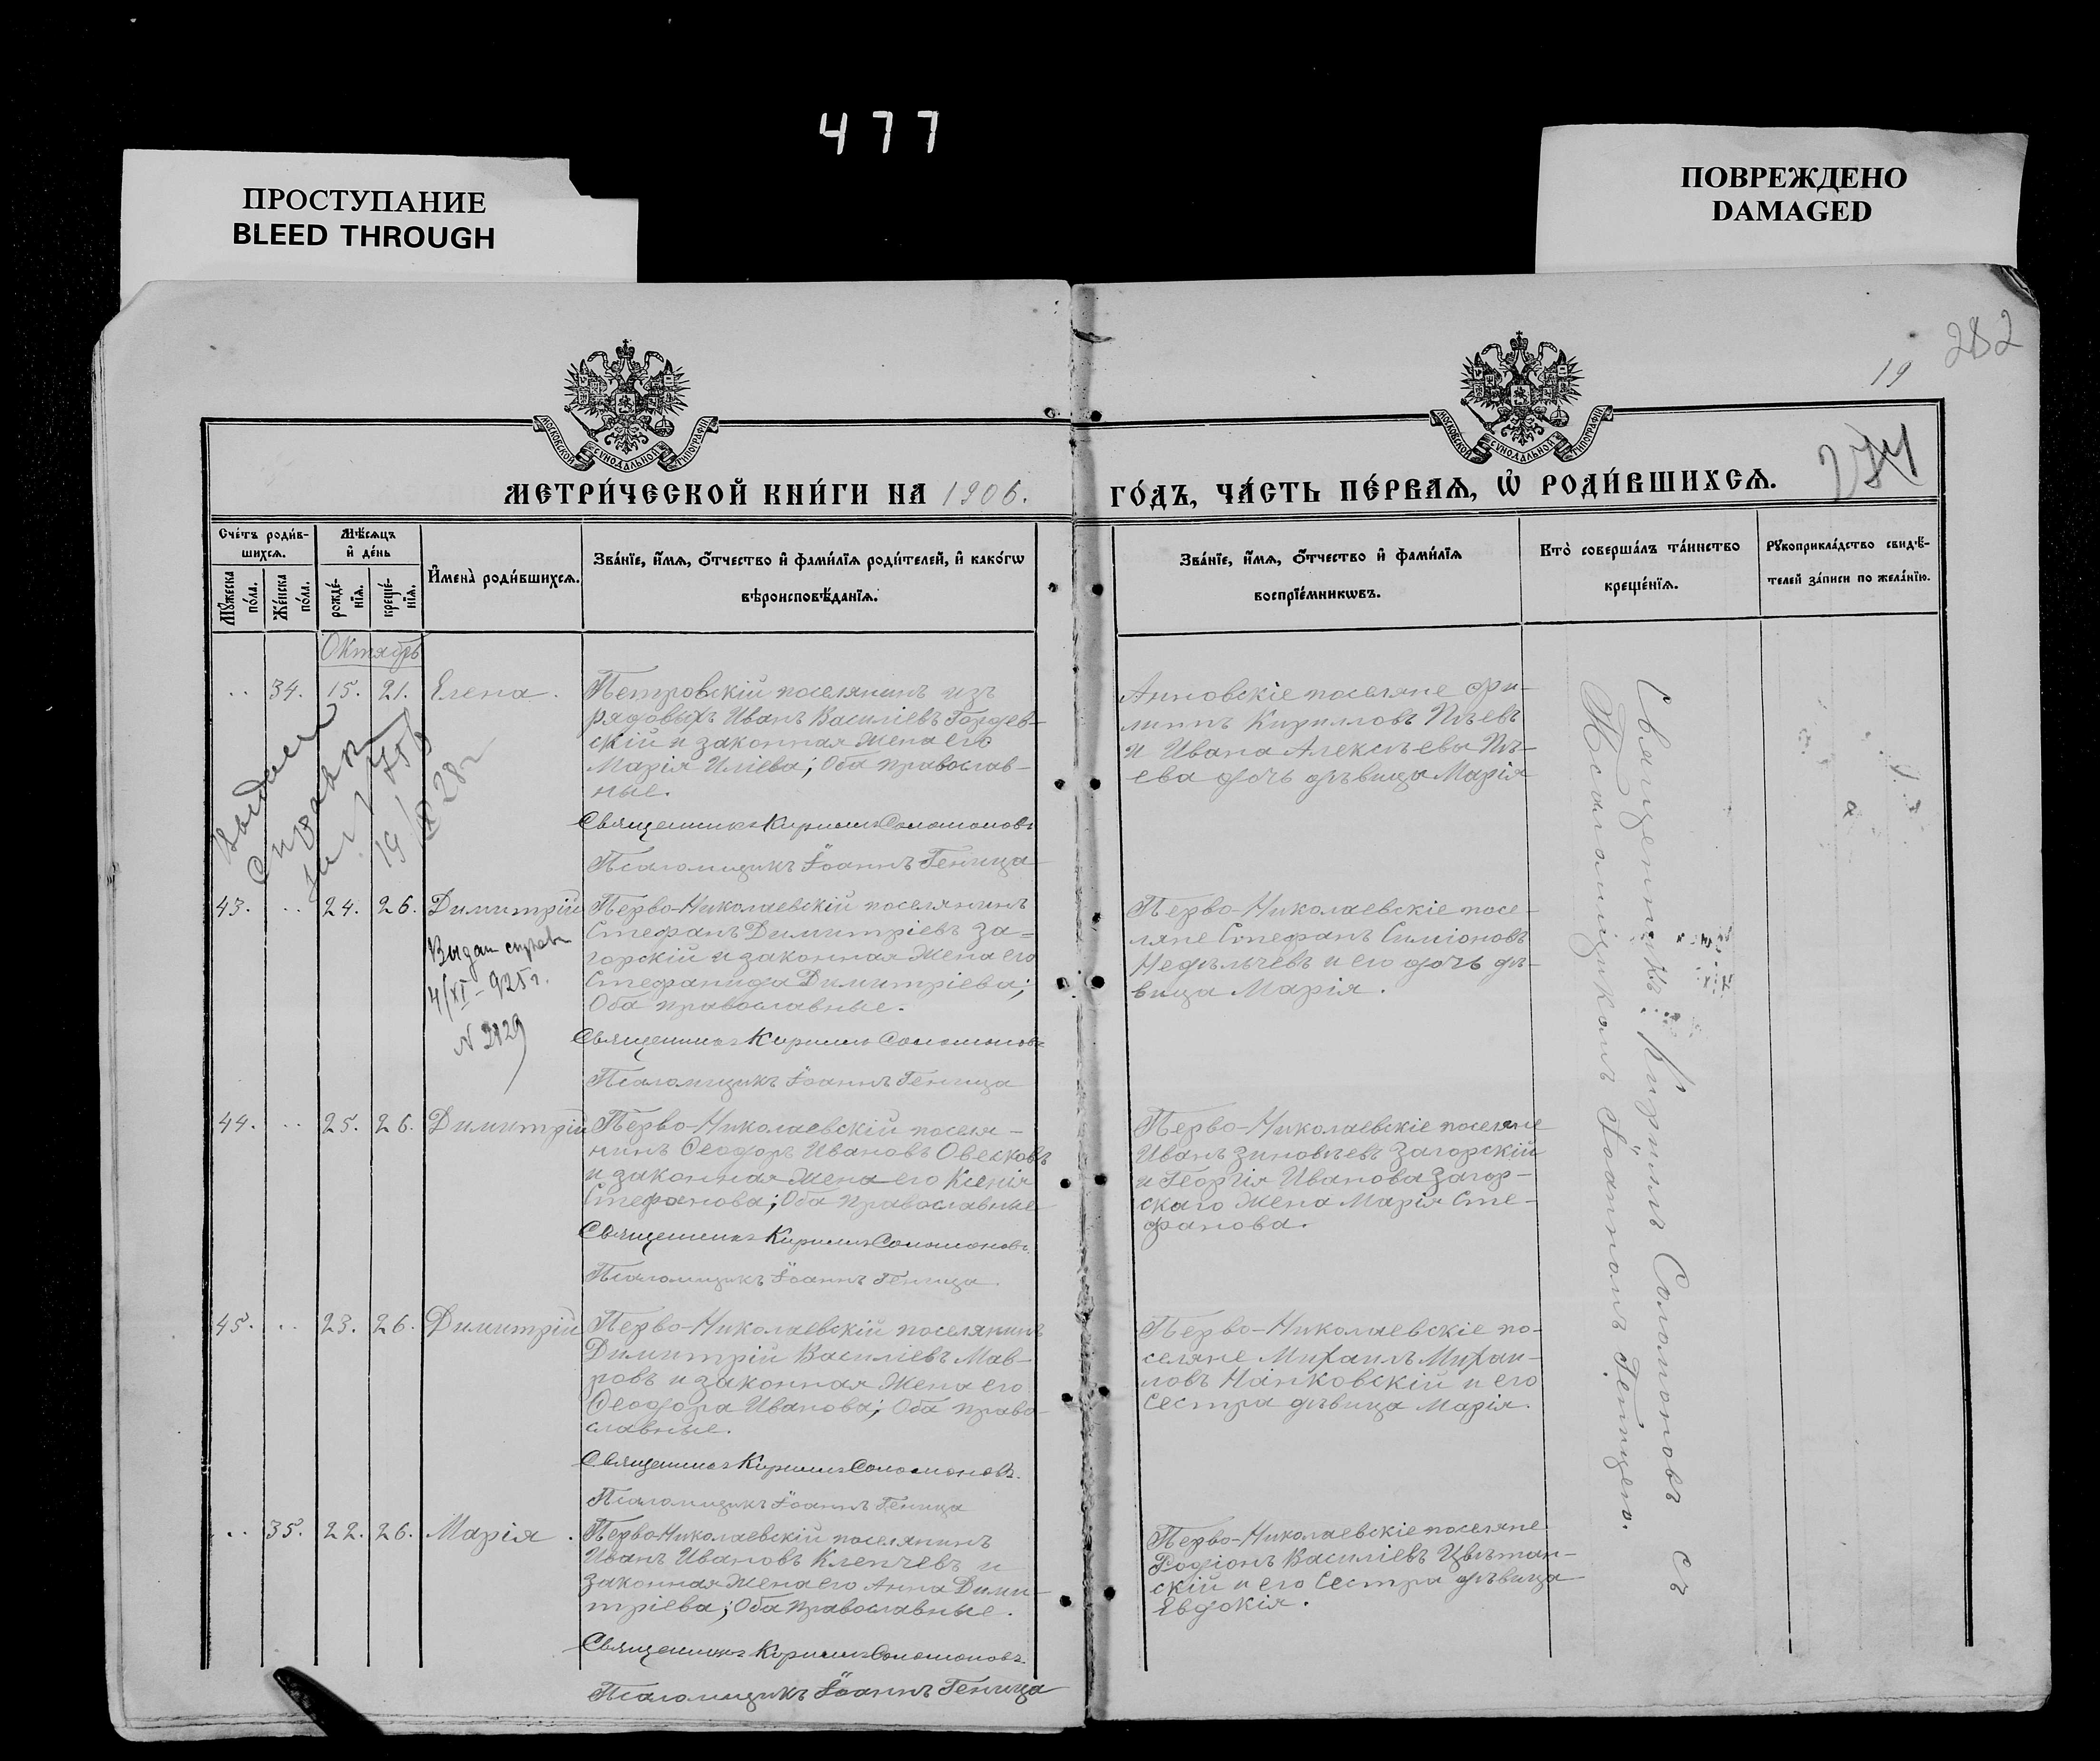 477
ПРОСТУПАНИЕ
BLEED THROUGH
ПОВРЕЖДЕНО
DAMAGED
282
19
274
МОСКОВСКОЙ СѴНОДАЛЬНОЙ ТИПОГРАФІИ
МОСКОВСКОЙ СѴНОДАЛЬНОЙ ТИПОГРАФІИ
МЕТРИ́ЧЕСКОЙ КНИ́ГИ НА 1906.
ГО́ДЪ, ЧА́СТЬ ПЕ́РВАѦ, Ѡ҆ РОДИ́ВШИХСѦ.
Сче́тъ роди́в-
шихсѧ.
Мꙋ́жеска по́ла.
Же́нска по́ла.
Мѣ́сѧцъ
и҆ де́нь
рожде́-
нїѧ.
креще́-
нїѧ.
И҆мена̀ роди́вшихсѧ.
Зва́нїе, и҆́мѧ, ѻ҆́тчество и҆ фами́лїѧ роди́телей, и҆ како́гѡ
вѣроисповѣ́данїѧ.
Зва́нїе, и҆́мѧ, ѻ҆́тчество и҆ фами́лїѧ
воспрїе́мникѡвъ.
Кто̀ соверша́лъ та́инство
креще́нїѧ.
Рꙋкоприкла́дство свидѣ́-
телей за́писи по жела́нїю.
Октябрь
.. 34. 15. 21. Елена.
Петровскій поселянинъ изъ
рядовыхъ Иванъ Василіевъ Гордев-
скій и законная жена его
Марія Иліева; Оба православ-
ные.
Священникъ Кириллъ Соломоновъ
Псаломщикъ Іоаннъ Геница
Анновскіе поселяне Фи-
липпъ Кирилловъ
и Ивана Алексѣева
ева дочь дѣвица Марія
43. .. 24. 26. Димитрій
Выдан справка
4/XI-925 г.
N 2829
Перво-Николаевскій поселянинъ
Стефанъ Димитріевъ За-
горскій и законная жена его
Стефанида Димитріева;
Оба православные.
Священникъ Кириллъ Соломоновъ
Псаломщикъ Іоаннъ Геница
Перво-Николаевскіе посе-
ляне Стефанъ Симіоновъ
Недѣльчевъ и его дочь дѣ-
вица Марія.
44. .. 25. 26. Димитрій
Перво-Николаевскій поселя-
нинъ Ѳеодоръ Ивановъ Овелковъ
и законная жена его Ксенія
Стефанова; Оба православные
Священникъ Кириллъ Соломоновъ.
Псаломщикъ Іоаннъ Геница.
Перво-Николаевскіе поселяне
Иванъ Зиновьевъ Загорскій
и Георгія Иванова Загор-
скаго жена Марія Сте-
фанова.
45. .. 23. 26. Димитрій
Перво-Николаевскій поселянинъ
Димитрій Василіевъ Мав-
ровъ и законная жена его
Ѳеодора Иванова; Оба право-
славные.
Священникъ Кириллъ Соломоновъ.
Псаломщикъ Іоаннъ Геница
Перво-Николаевскіе по-
селяне Михаилъ Михаи-
ловъ Нанковскій и его
сестра дѣвица Марія.
.. 35. 22. 26. Марія.
Перво-Николаевскій поселянинъ
Иванъ Ивановъ Клепчевъ и
законная жена его Анна Дими-
тріева; Оба православные.
Священникъ Кириллъ Соломоновъ
Псаломщикъ Іоаннъ Геница
Перво-Николаевскіе поселяне
Родіонъ Василіевъ Цвѣтан-
скій и его сестра дѣвица
Евдокія.
Священникъ Кириллъ Соломоновъ съ
Псаломщикомъ Іоанномъ Геницею.